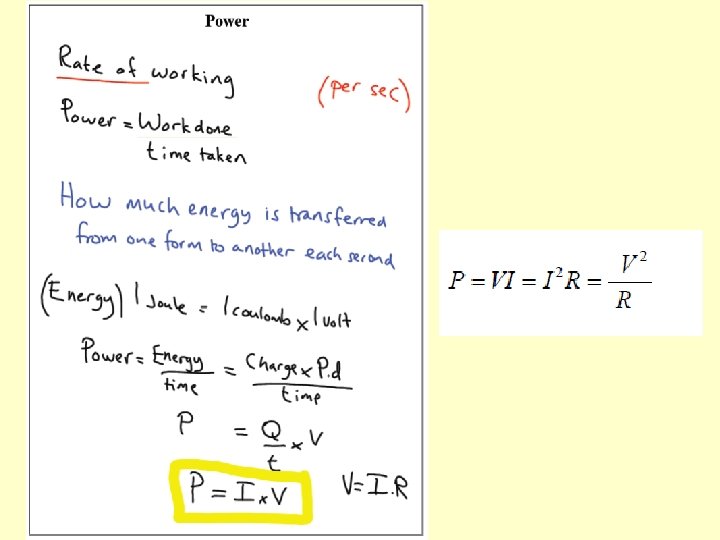 Power
Rate of working
(per sec)
Power = Work done
time taken
How much energy is transferred
from one form to another each second
(Energy) 1 Joule = 1 coulomb x 1 volt
Power = Energy / time = Charge x P.d / time
P = Q / t x V
P = I x V
V = I.R
P = VI = I²R = V² / R